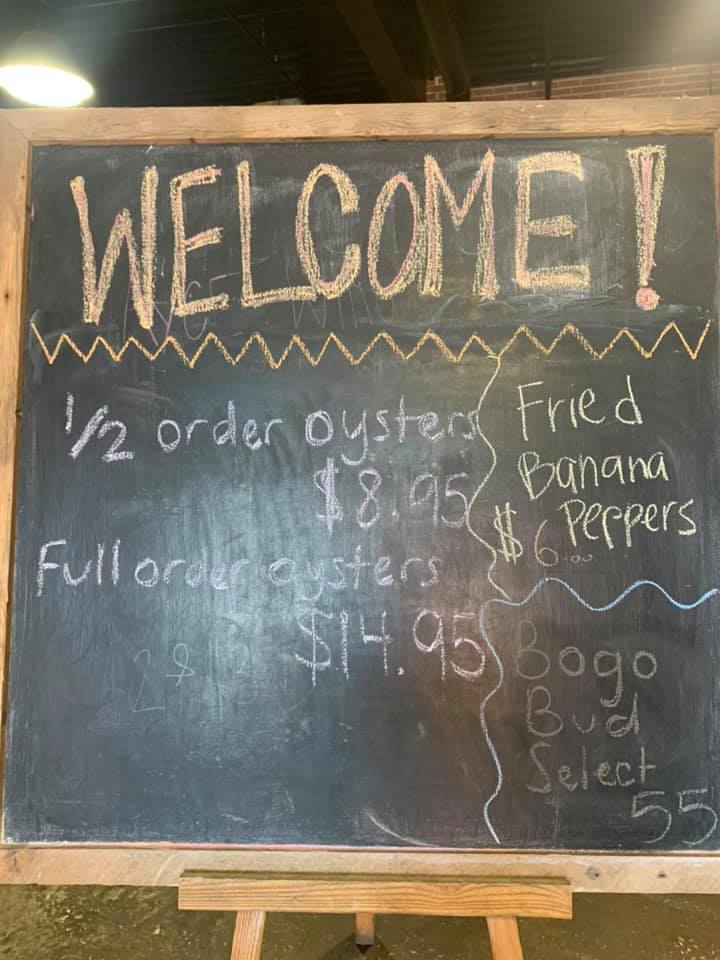 WELCOME!
1/2 order oysters
$8.95
Full order oysters
$14.95
Fried
Banana
Peppers
$6.00
Bogo
Bud
Select
55